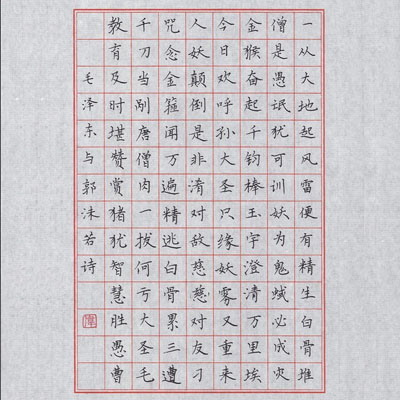 一从大地起风雷便有精生白骨堆
僧是愚氓犹可训妖为鬼蜮必成灾
金猴奋起千钧棒玉宇澄清万里埃
今日欢呼孙大圣只缘妖雾又重来
人妖颠倒是非淆对敌慈悲对友刁
咒念金箍闻万遍精逃白骨累三遭
千刀当剐唐僧肉一拔何亏大圣毛
教育及时堪赞赏猪犹智慧胜愚曹
毛泽东与郭沫若诗